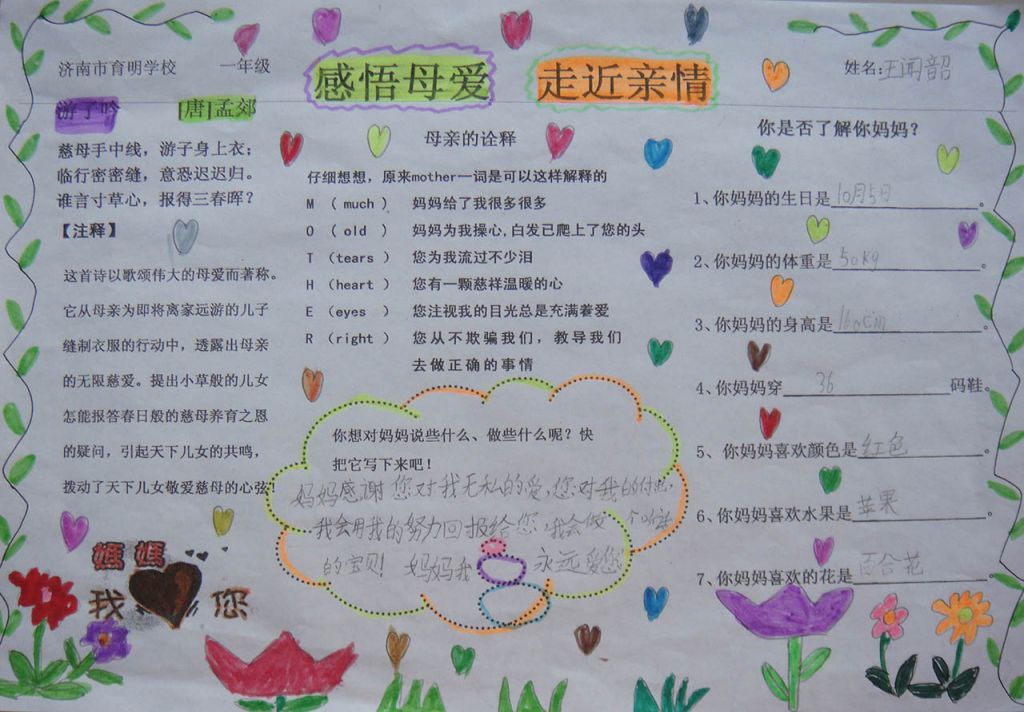 济南市育明学校 一年级
感悟母爱 走近亲情
姓名:王闻韶
游子吟 [唐]孟郊
慈母手中线，游子身上衣；
临行密密缝，意恐迟迟归。
谁言寸草心，报得三春晖？
【注释】
这首诗以歌颂伟大的母爱而著称。
它从母亲为即将离家远游的儿子
缝制衣服的行动中，透露出母亲
的无限慈爱。提出小草般的儿女
怎能报答春日般的慈母养育之恩
的疑问，引起天下儿女的共鸣，
拨动了天下儿女敬爱慈母的心弦!
媽媽
我 您
母亲的诠释
仔细想想，原来mother一词是可以这样解释的
M （much ） 妈妈给了我很多很多
O （old ） 妈妈为我操心,白发已爬上了您的头
T （tears ） 您为我流过不少泪
H （heart ） 您有一颗慈祥温暖的心
E （eyes ） 您注视我的目光总是充满着爱
R （right ） 您从不欺骗我们，教导我们
去做正确的事情
你想对妈妈说些什么、做些什么呢？快
把它写下来吧！
妈妈感谢您对我无私的爱,您对我的付出,
我会用我的努力回报给您,我会做一个
的宝贝! 妈妈我永远爱您
你是否了解你妈妈？
1、你妈妈的生日是10月5日。
2、你妈妈的体重是50kg。
3、你妈妈的身高是160cm。
4、你妈妈穿36码鞋。
5、你妈妈喜欢颜色是红色。
6、你妈妈喜欢水果是苹果。
7、你妈妈喜欢的花是百合花。